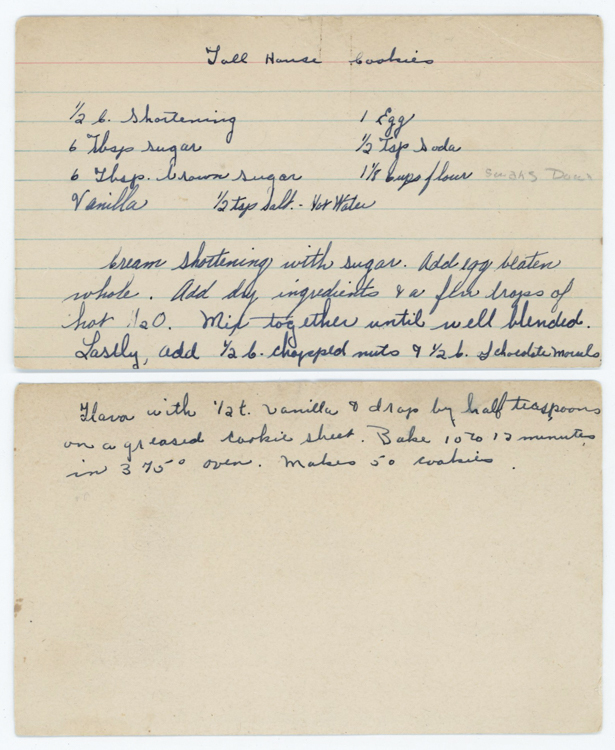 Toll House Cookies
½ C. Shortening 1 Egg
6 Tbsp sugar ½ tsp Soda
6 Tbsp. brown sugar 1⅛ cups flour Swans Down
Vanilla ½ tsp salt - Hot Water
Cream shortening with sugar. Add egg beaten
whole. Add dry ingredients & a few drops of
hot H2O. Mix together until well blended.
Lastly, add ½ C. chopped nuts & ½ C. chocolate morsels
Flavor with ½ t. vanilla & drop by half teaspoons
on a greased cookie sheet. Bake 10 to 12 minutes
in 375° oven. Makes 50 cookies.